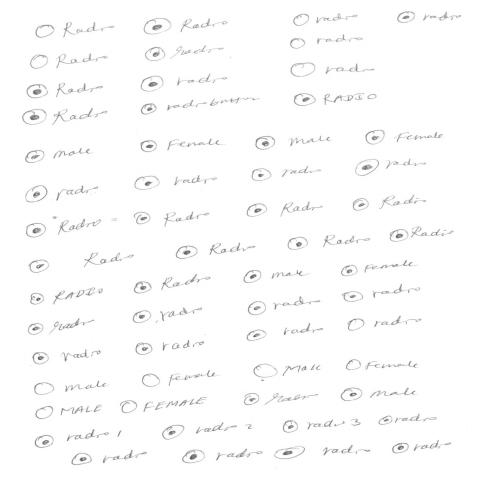 Radio Radio radio radio
Radio Radio radio
Radio radio radio
Radio radio button RADIO
male Female male Female
radio radio radio radio
"Radio = Radio Radio Radio
Radio Radio Radio Radio
RADIO Radio male Female
Radio radio radio radio
radio radio radio radio
male Female Male Female
MALE FEMALE male
radio 1 radio 2 radio 3 radio
radio radio radio radio